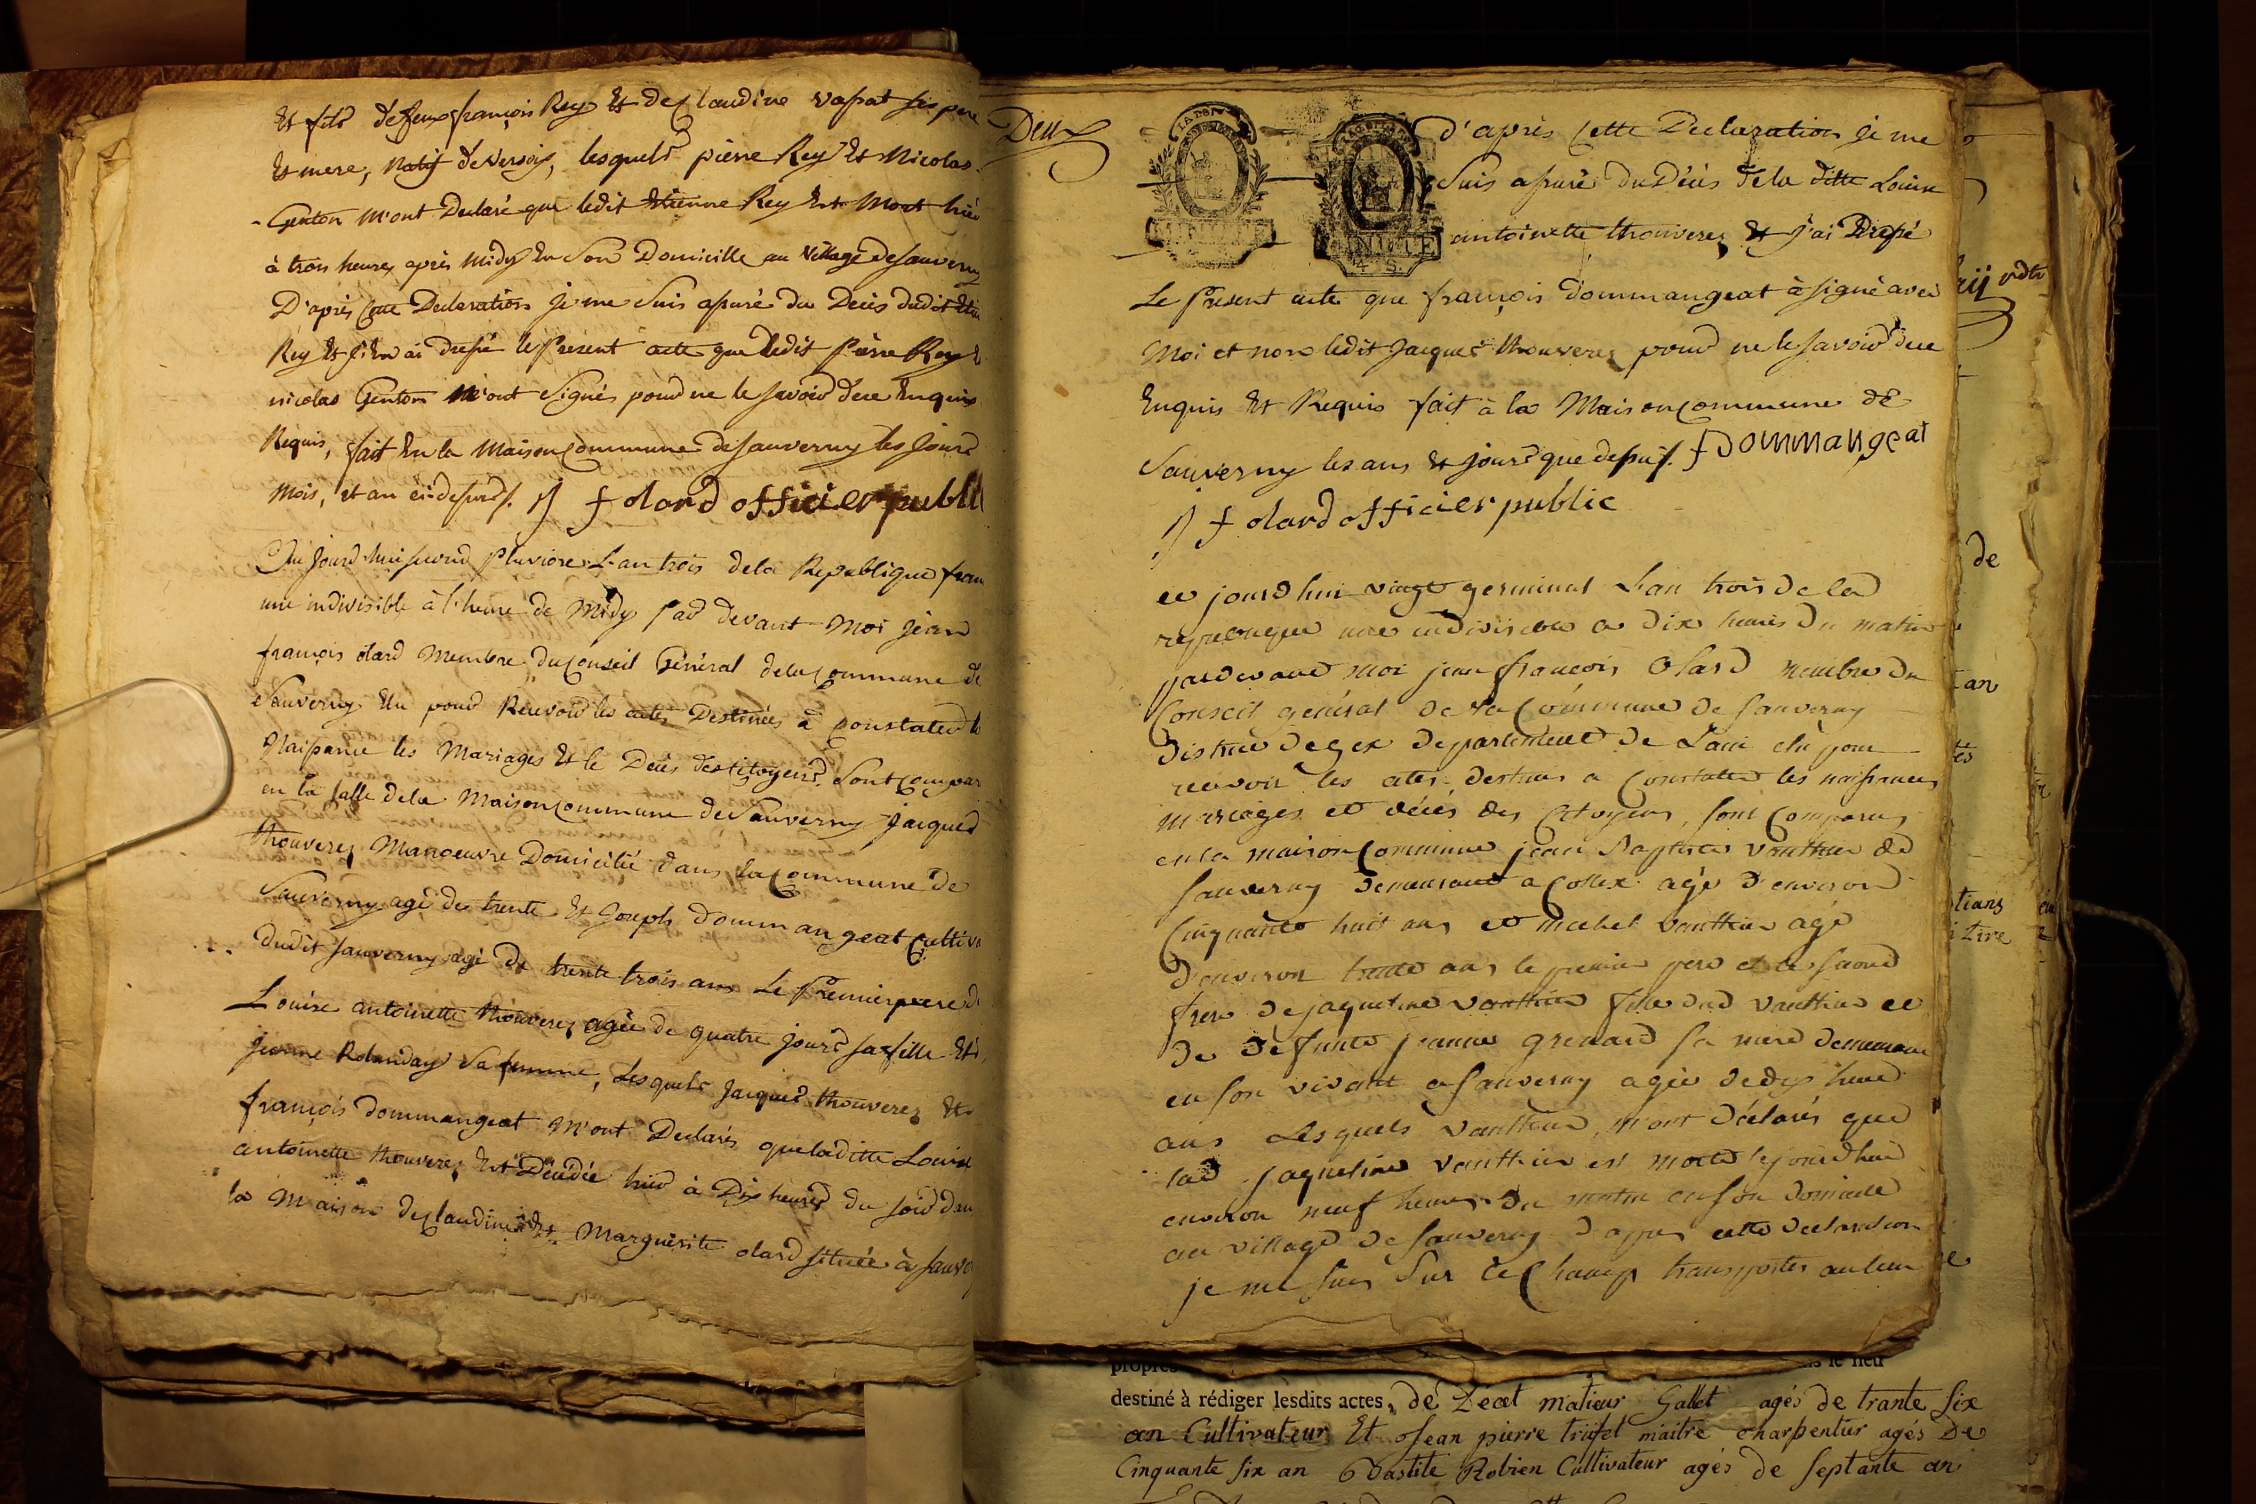 Et fils de feux françois Rey Et de Claudine vassat ses pere
Et mere, Natif de versoix, lesquels pierre Rey Et Nicolas
Genton M'ont Declaré que ledit Etienne Rey Est Mort hier
à trois heures après Midy En Son Domicille au Village de Sauverny
D'après Cette Declaration je me Suis assuré du Decès dudit Etie
Rey Et j'En ai dressé le Présent acte que ledit Pierre Rey E
nicolas Genton N'ont Signés pour ne le savoir dece Enquis
Requis, fait En la Maison Commune de Sauverny les Jours
Mois, et an ci-dessus. JJ f olard officier publi
Au Jourd'hui second Pluviose L'an trois de la Republique fran
une indivisible à l'heure de Midy Par devant Moi jean
françois olard Membre du Conseil Général de la Commune de
Sauverny Elu pour Recevoir les actes Destinées à Constater le
Naissance les Mariages Et le Decès des Citoyens, Sont Compar
en la salle de la Maison Commune de Sauverny Jacques
thouverez Manoeuvre Domicilié dans la Commune de
Sauverny agé de trente Et Joseph dommangeat Cultiva
dudit Sauverny agé de trente trois ans Le Premier pere de
Louise antoinette thouverez agée de quatre jours sa fille Et
jeanne Rolanday Sa femme, Lesquels Jacques thouverez Et
françois dommangeat M'ont Declarés que laditte Louise
antoinette thouverez Est Décédée hier à Dix heures du soir dan
la Maison de Claudine Et Marguérite olard située à Sauve
Deux
LA NATION
MINUTE
MINUTE
4 S
d'après Cette Declaration je me
Suis assuré du Décès de la ditte Louise
antoinette thouverez Et j'ai Dressé
Le Présent acte que françois dommangeat à signé avec
Moi et non ledit Jacques thouverez pour ne le savoir dece
Enquis Et Requis fait à la Maison Commune de
Sauverny les ans Et jours que dessus. f Dommangeat
JJ f olard officier public
ce jourd hui vingt germinal L'an trois de la
republique une indivisible a dix heures du matin
pardevant moi jean françois Olard membre du
Conseil général de la Commune de Sauverny
District de gex departement de L'ain elu pour
recevoir les actes destines a Constater les naissances
mariages et décés des Citoyens, sont Comparus
en la maison Commune jean Baptiste Vauthier de
Sauverny demeurant a Collex agé d'environ
Cinquante huit ans et michel Vauthier agé
d'environ trente ans le premier pere et le second
frere de jaqueline Vauthier fille dud Vauthier et
de défunte jeanne grenard sa mere demeurant
en son vivant a Sauverny agée de dix heut
ans Lesquels Vauthier m'ont déclarés que
lad jaqueline Vauthier est morte cejourdhui
environ neuf heures du matin en son domicile
au village de Sauverny d'apres cette declaration
je me suis Sur le Champ transporter au lieu
destiné à rédiger lesdits actes, de Léat matieur Gallet agés de trante six
an Cultivateur Et Jean pierre trifet maitre charpentier agés De
Cinquante six an Bastite Robien Cultivateur agés de septante an